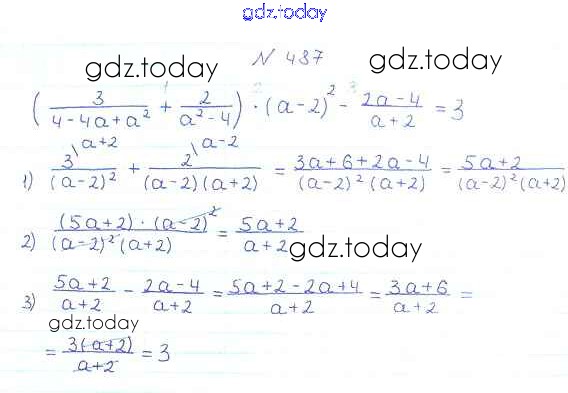 gdz.today
gdz.today
N 487
gdz.today
(3/(4-4a+a²) + 2/(a²-4)) · (a-2)² - (2a-4)/(a+2) = 3
1) 3\a+2/(a-2)² + 2\a-2/((a-2)(a+2)) = (3a+6+2a-4)/((a-2)²(a+2)) = (5a+2)/((a-2)²(a+2))
2) ((5a+2)·(a-2)²)/((a-2)²(a+2)) = (5a+2)/(a+2)
gdz.today
3) (5a+2)/(a+2) - (2a-4)/(a+2) = (5a+2-2a+4)/(a+2) = (3a+6)/(a+2) =
gdz.today
= (3(a+2))/(a+2) = 3